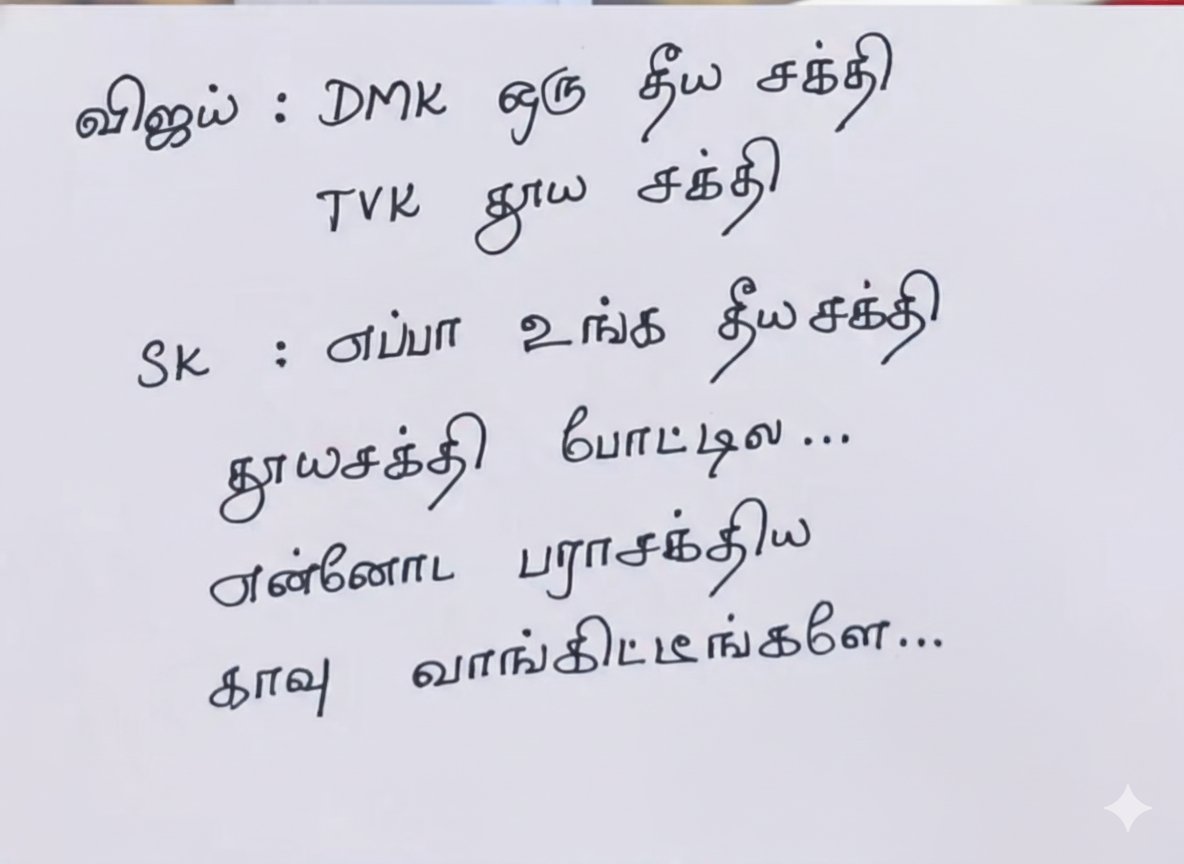 விஜய் : DMK ஒரு தீய சக்தி
TVK தூய சக்தி
SK : எப்பா உங்க தீய சக்தி
தூயசக்தி போட்டில...
என்னோட பராசக்திய
காவு வாங்கிட்டீங்களே...